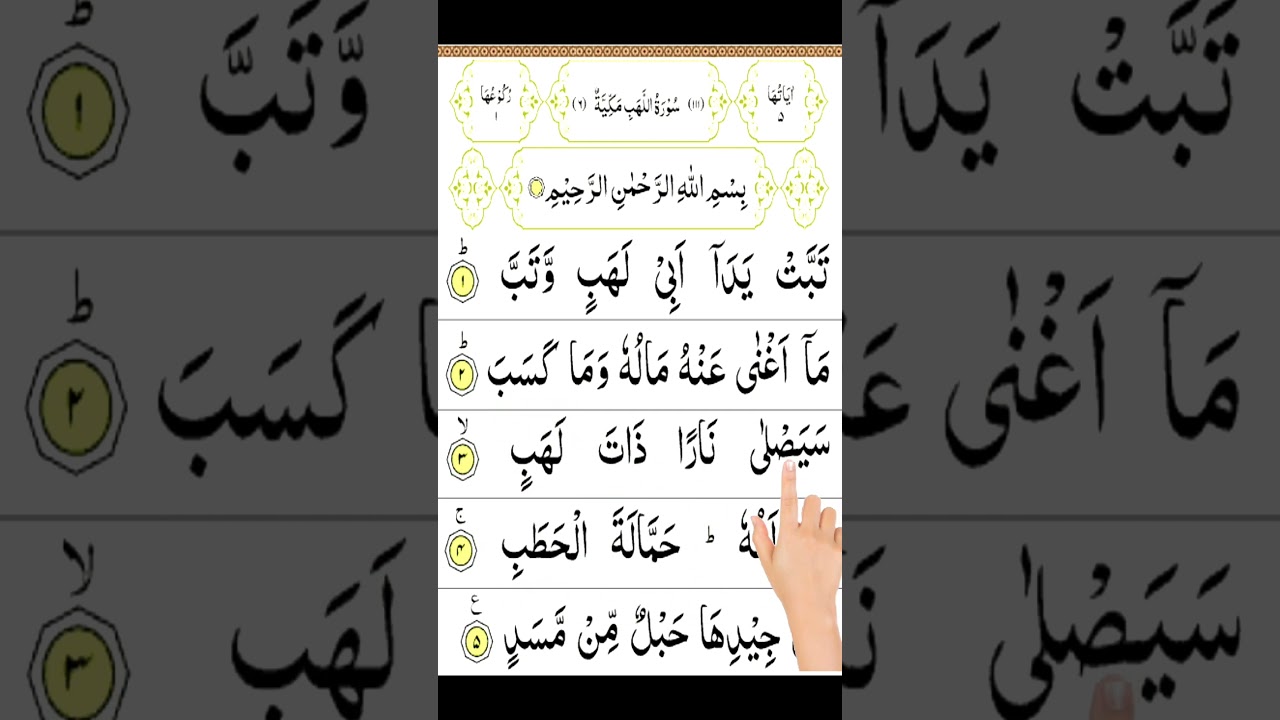 اٰیَاتُهَا ۵
(۱۱۱) سُوْرَةُ اللَّهَبِ مَكِّيَّةٌ (٦)
رُكُوْعُهَا ۱
بِسْمِ اللّٰهِ الرَّحْمٰنِ الرَّحِيْمِ
تَبَّتْ يَدَآ اَبِيْ لَهَبٍ وَّتَبَّ ؕ ۱
مَآ اَغْنٰى عَنْهُ مَالُهٗ وَمَا كَسَبَ ؕ ۲
سَيَصْلٰى نَارًا ذَاتَ لَهَبٍ ۙ ۳
ؕ حَمَّالَةَ الْحَطَبِ ۚ ۴
جِيْدِهَا حَبْلٌ مِّنْ مَّسَدٍ ۵ ع